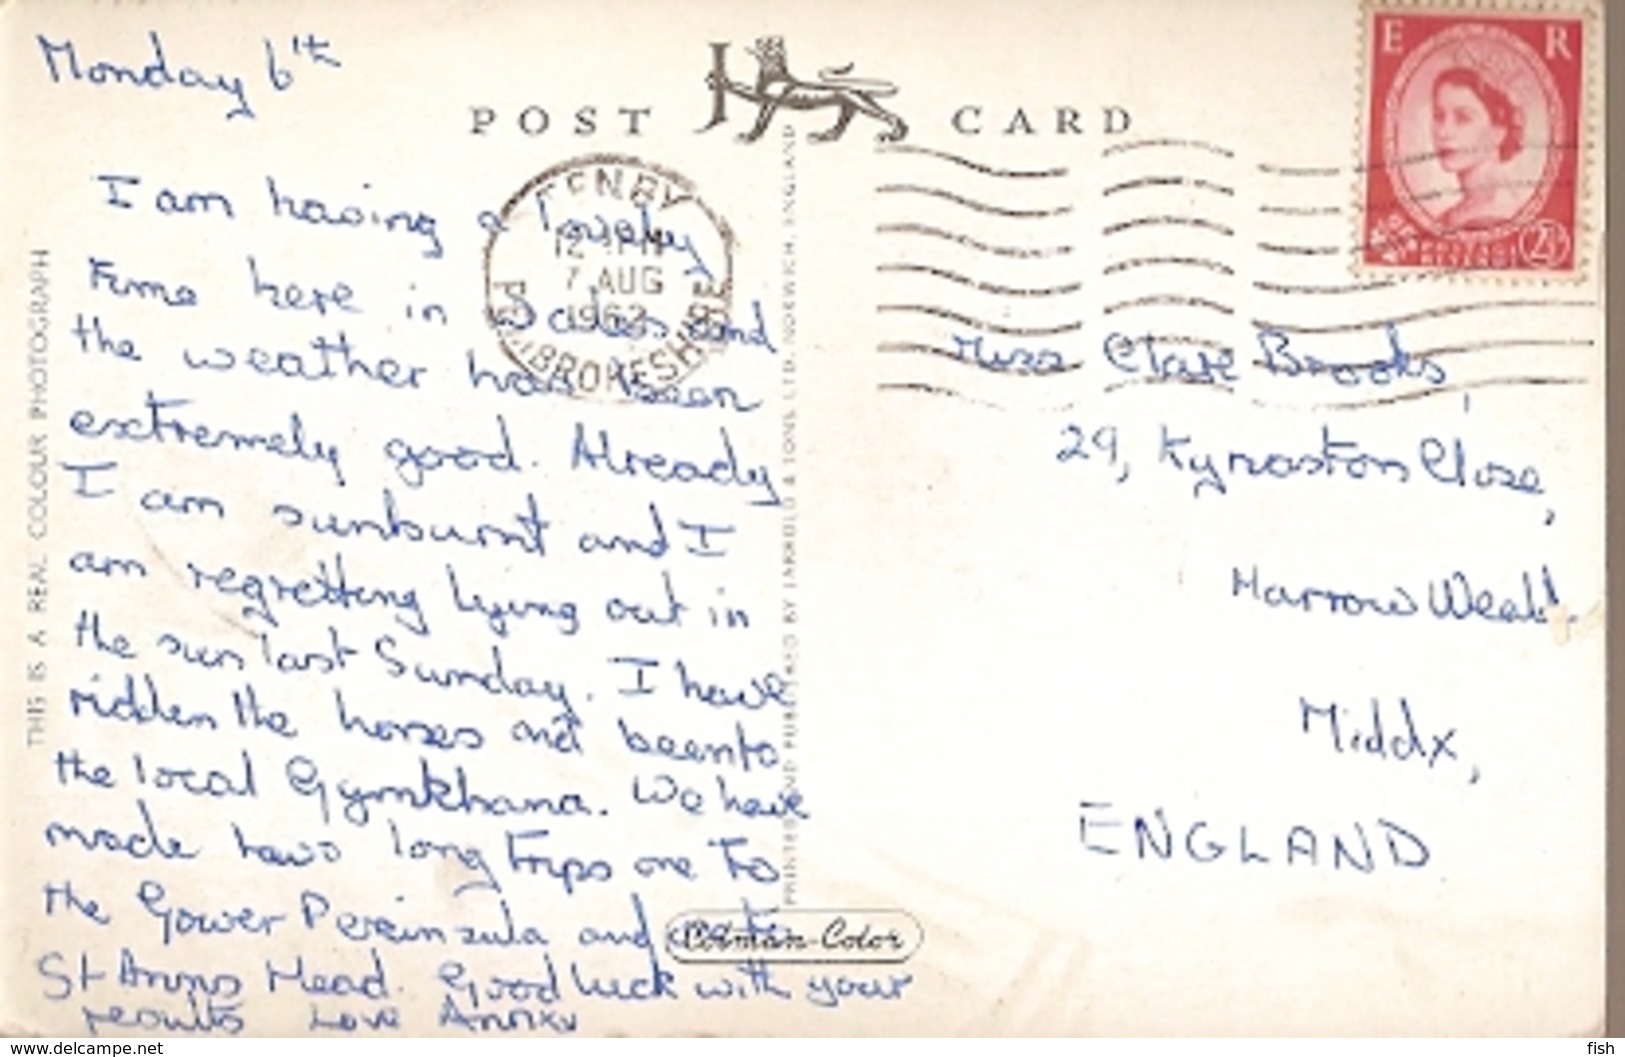 Monday 6th
POST CARD
E R
2½D
TENBY
7 AUG
1962
PEMBROKESHIRE
I am having a lovely
time here in Wales and
the weather has been
extremely good. Already
I am sunburnt and I
am regretting lying out in
the sun last Sunday. I have
ridden the horses and been to
the local Gymkhana. We have
made two long trips one to
the Gower Peninsula and one to
St Anns Head. Good luck with your
results Love
Miss Clare Brooks,
29, Kynaston Close,
Harrow Weald,
Middx,
ENGLAND
THIS IS A REAL COLOUR PHOTOGRAPH
PRINTED AND PUBLISHED BY JARROLD & SONS LTD, NORWICH, ENGLAND
Cotman-Color
www.delcampe.net
fish